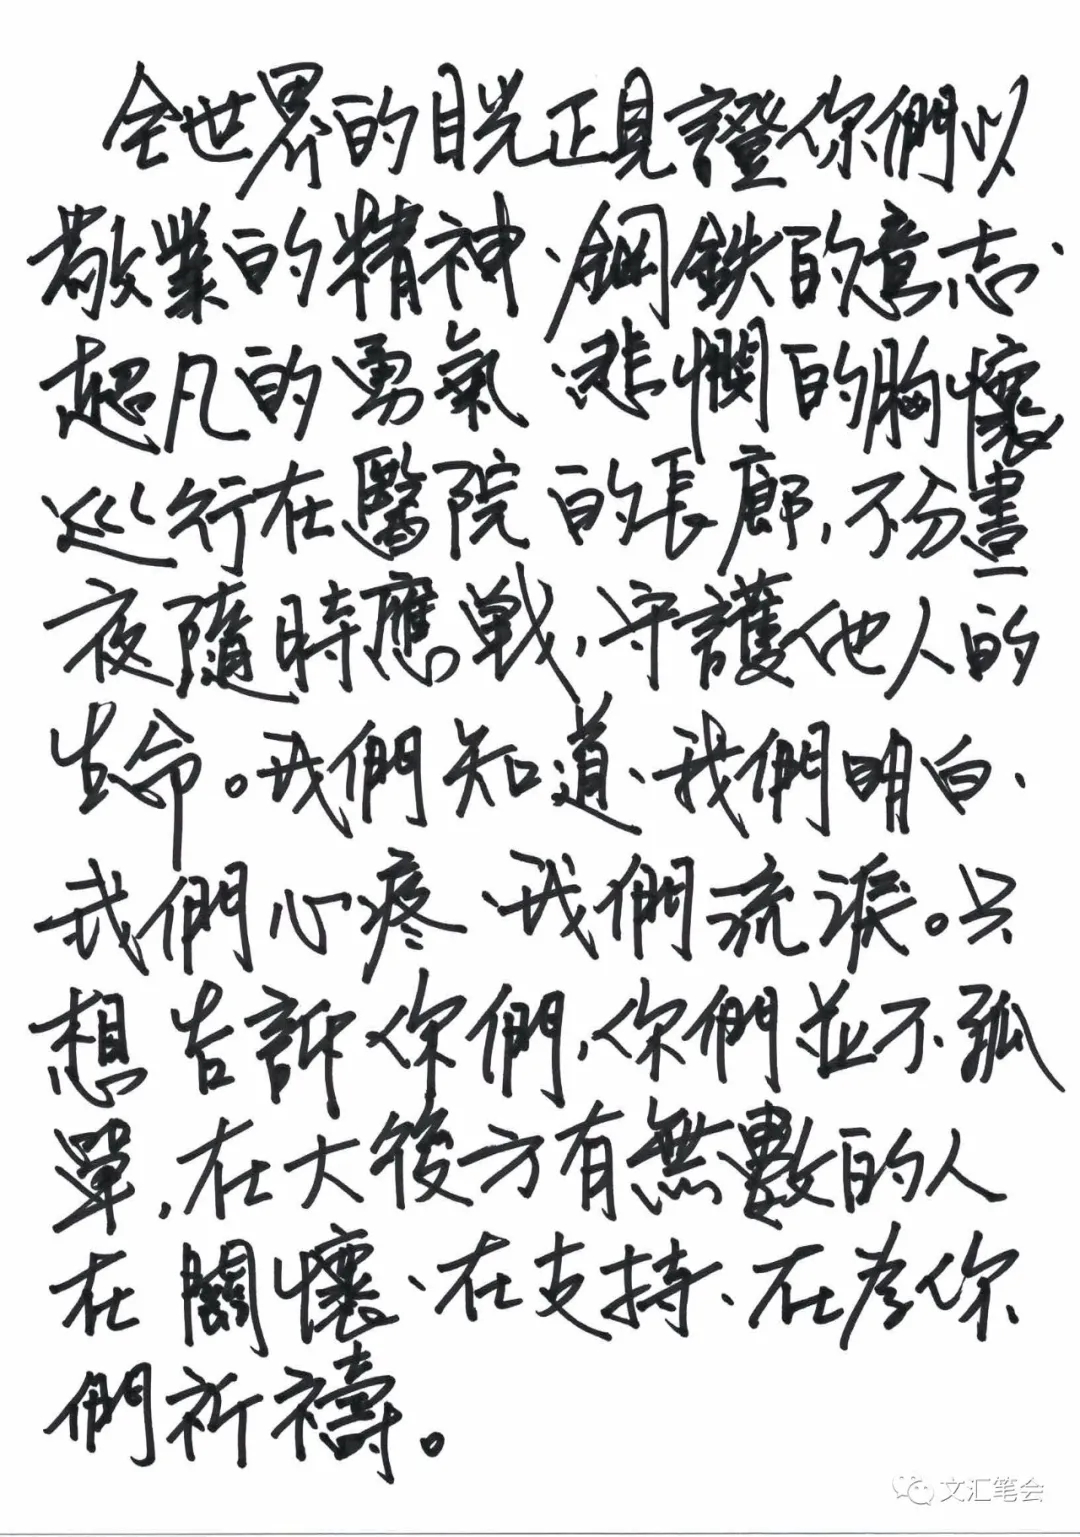 全世界的目光正見證你們以
敬業的精神、鋼鉄的意志、
超凡的勇氣、悲憫的胸懷
巡行在醫院的長廊,不分晝
夜隨時應戰,守護他人的
生命。我們知道、我們明白、
我們心疼、我們流淚。只
想告訴你們,你們並不孤
單,在大後方有無數的人
在關懷、在支持、在為你
們祈禱。
文汇笔会